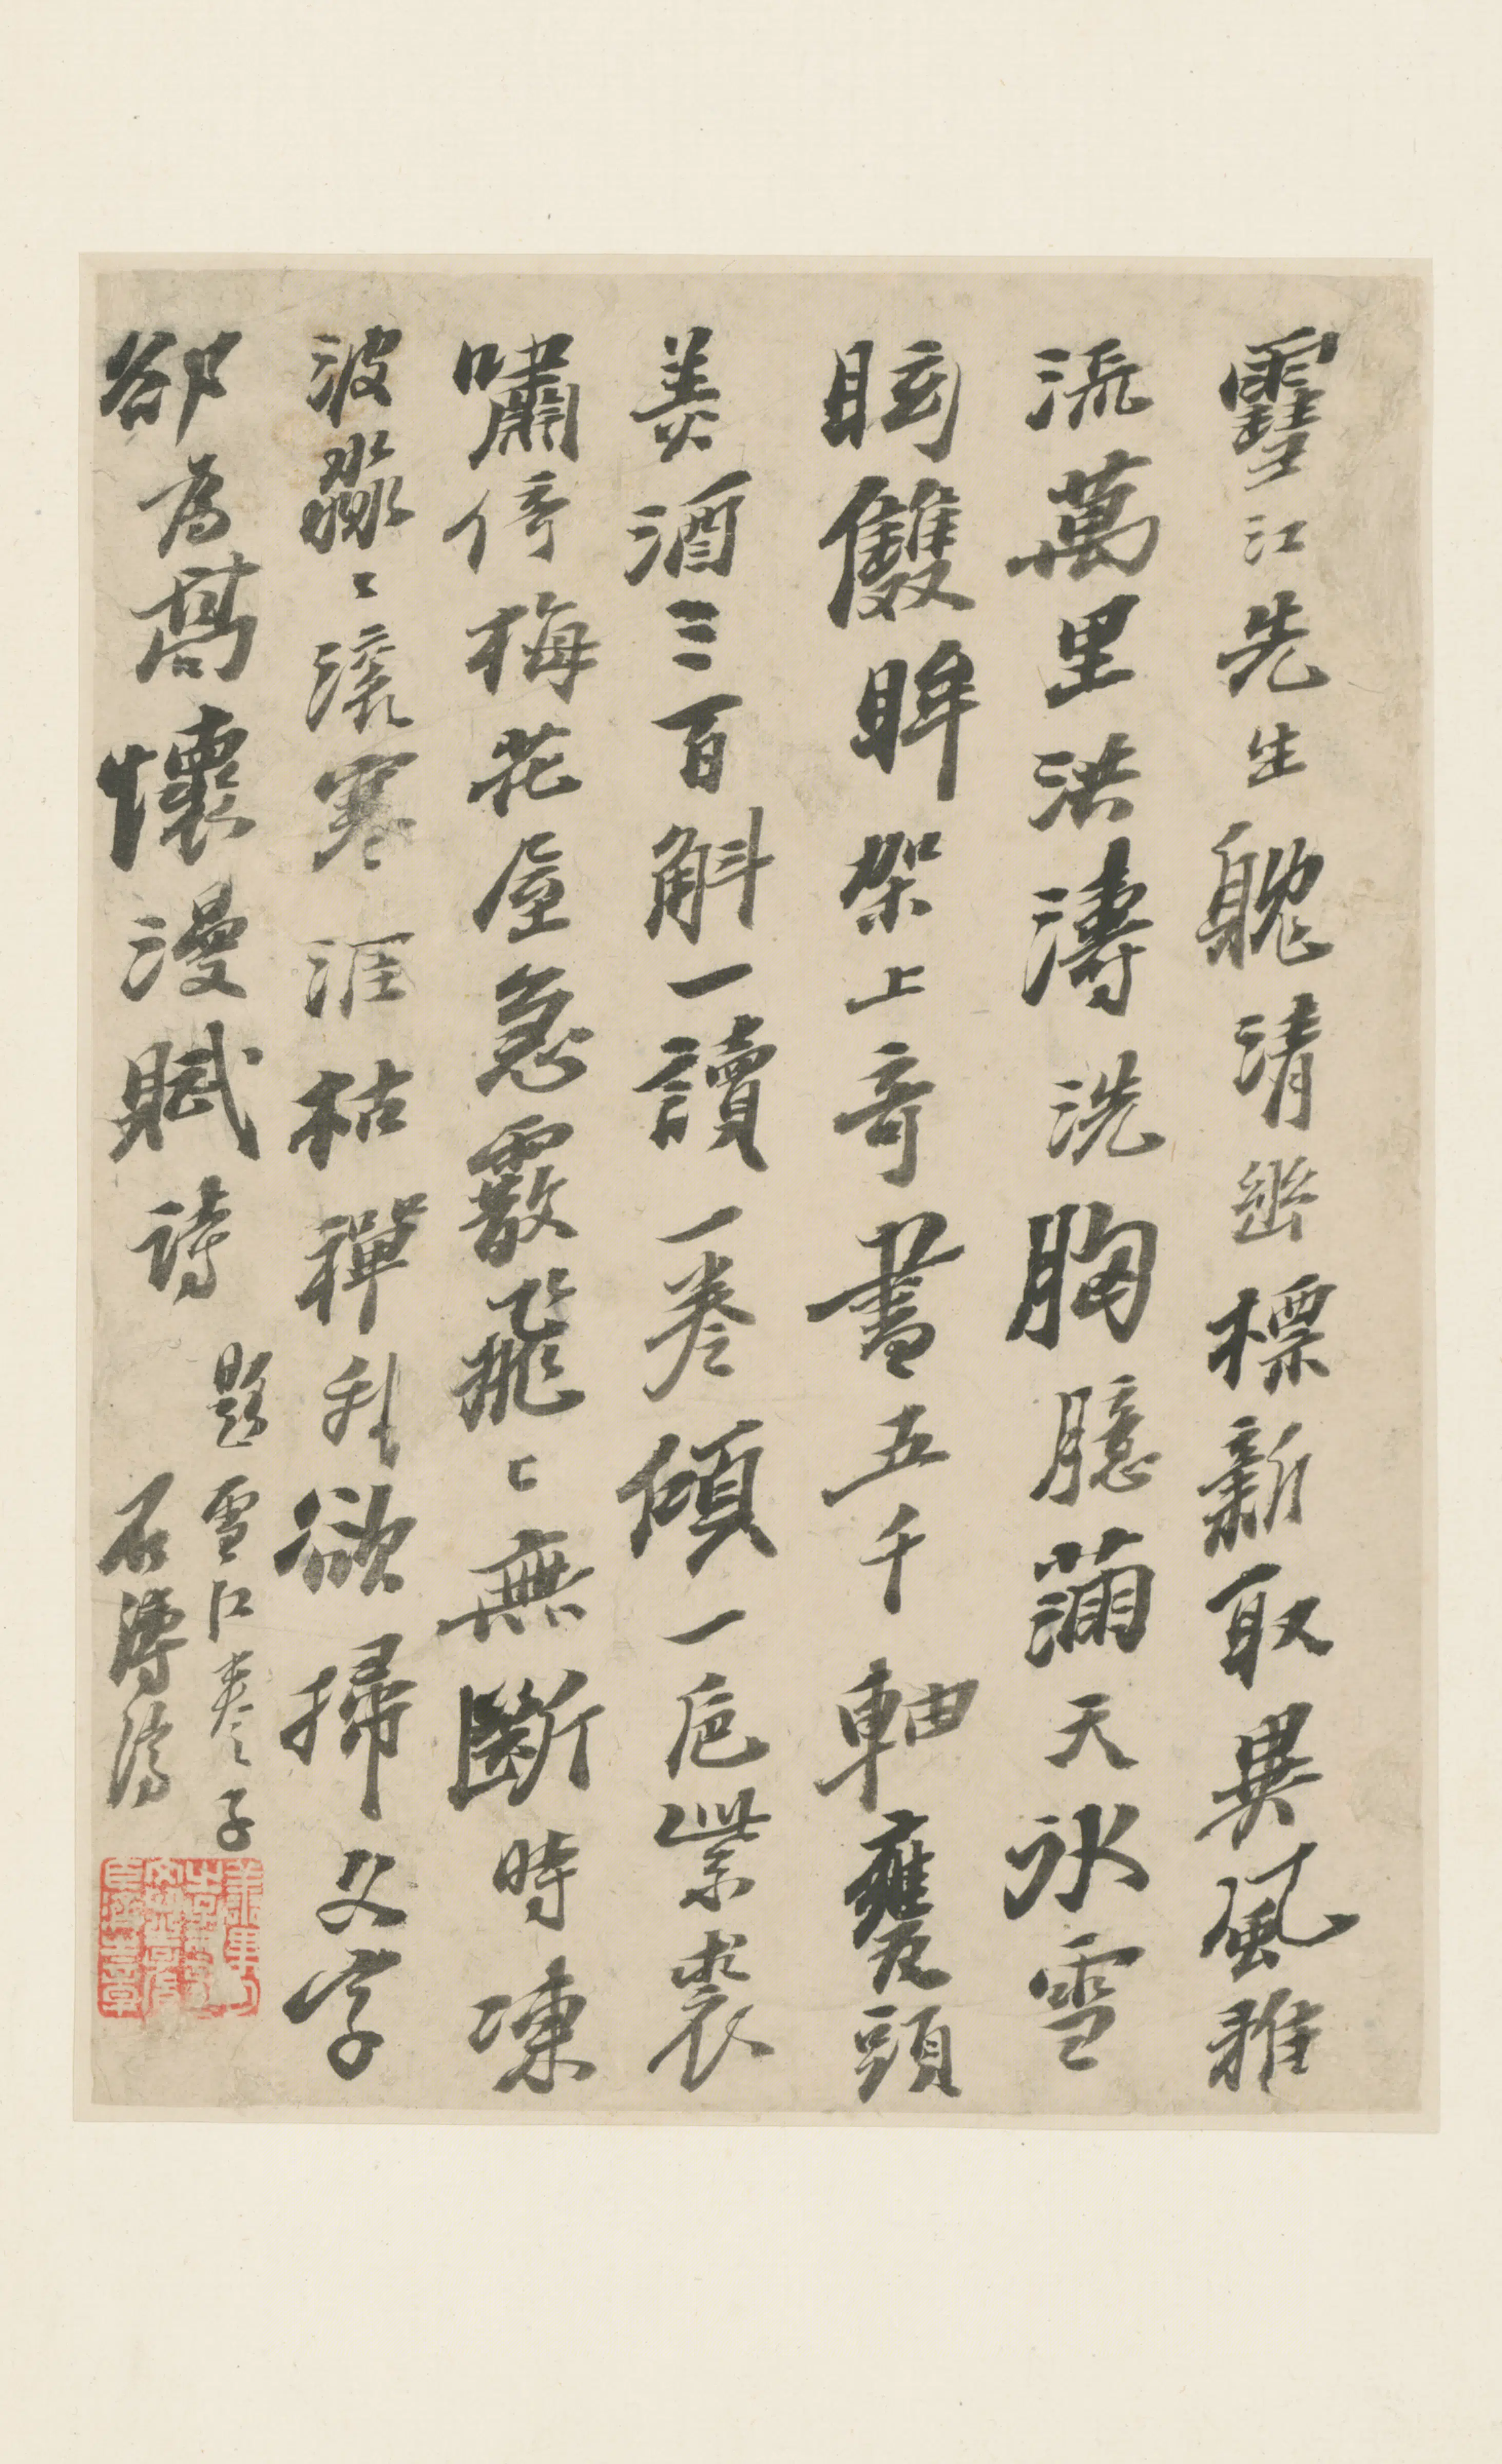 䨮江先生躭清幽標新取異風雅
流萬里洪濤洗胸臆滿天冰雪
眩雙眸架上奇書五千軸甕頭
美酒三百斛一讀一卷傾一卮紫裘
嘯倚梅花屋急霰飛〻無斷時凍
波淼〻滾寒涯枯禪我欲掃文字
卻為高懷漫賦詩
題雪江卷子
石濤濟